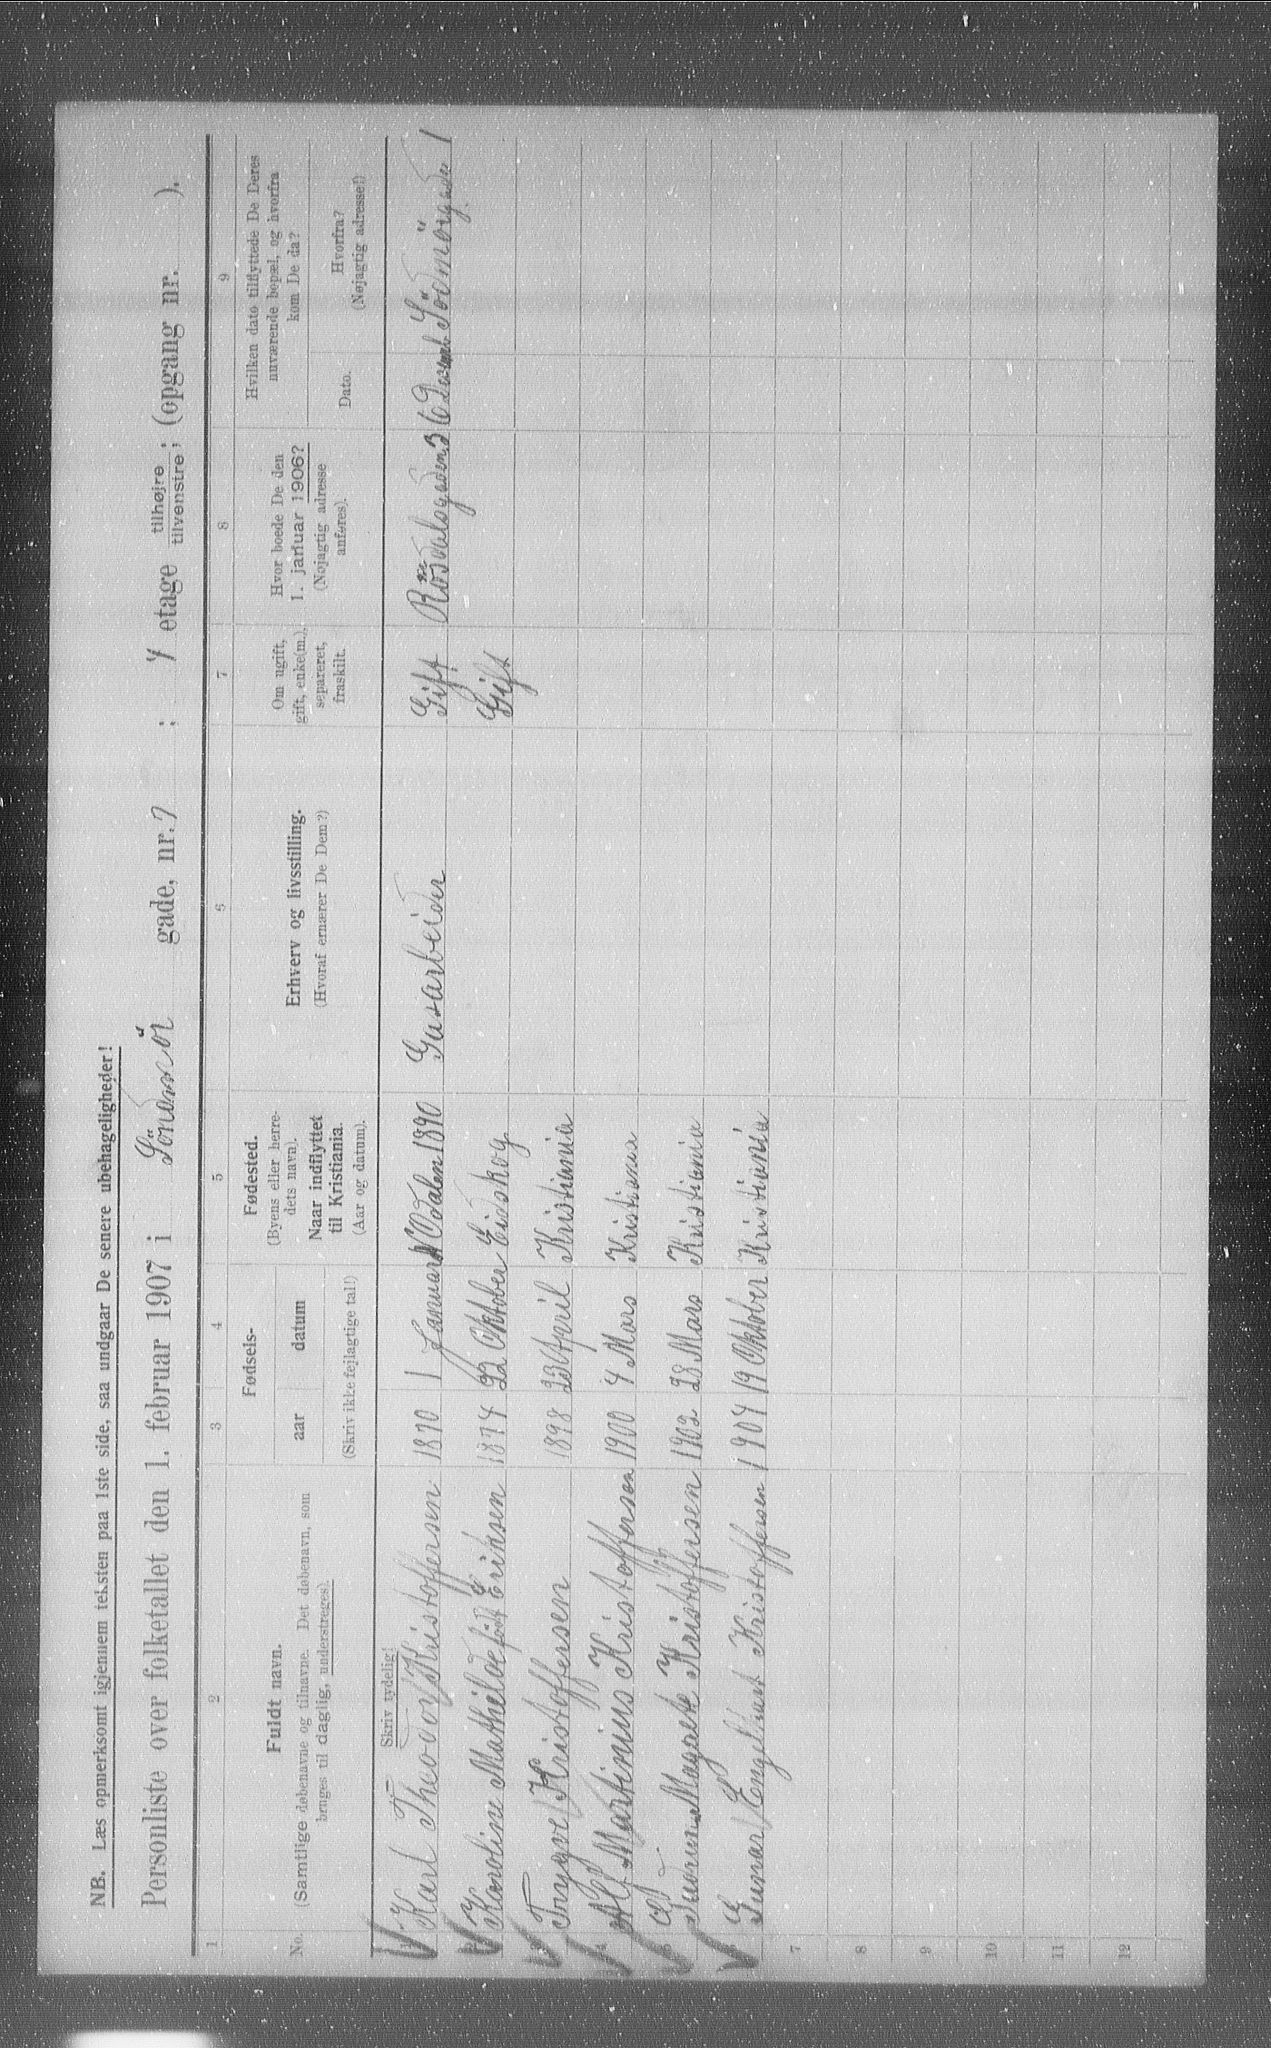 NB. Læs opmerksomt igjennem teksten paa 1ste side, saa undgaar De senere ubehageligheder!
Personliste over folketallet den 1. februar 1907 i Söndmör gade, nr. 7 ; 4 etage tilhøjre / tilvenstre ; (opgang nr. ).
1 2 3 4 5 6 7 8 9
No.
Fuldt navn.
(Samtlige døbenavne og tilnavne. Det døbenavn, som
bruges til daglig, understreges).
Fødsels-
aar datum
(Skriv ikke fejlagtige tal!)
Fødested.
(Byens eller herre-
dets navn).
Naar indflyttet
til Kristiania.
(Aar og datum).
Erhverv og livsstilling.
(Hvoraf ernærer De Dem?)
Om ugift,
gift, enke(m.),
separeret,
fraskilt.
Hvor boede De den
1. januar 1906?
(Nøjagtig adresse
anføres).
Hvilken dato tilflyttede De Deres
nuværende bopæl, og hvorfra
kom De da?
Dato.
Hvorfra?
(Nøjagtig adresse!)
Skriv tydelig!
Karl Theodor Kristoffersen 1870 1 Januar Odalen 1890 Gasarbeider Gift Romsdalsgaden 3 6 Södmörgade 1
2 Karoline Mathilde født Eriksen 1874 22 Oktober Eidskog Gift
3 Trygve Kristoffersen 1898 23 April Kristiania
4 Alf Martinius Kristoffersen 1900 4 Mars Kristiania
5 Magrete Kristoffersen 1902 28 Mars Kristiania
6 Gunnar Engelhart Kristoffersen 1904 19 Oktober Kristiania
7
8
9
10
11
12